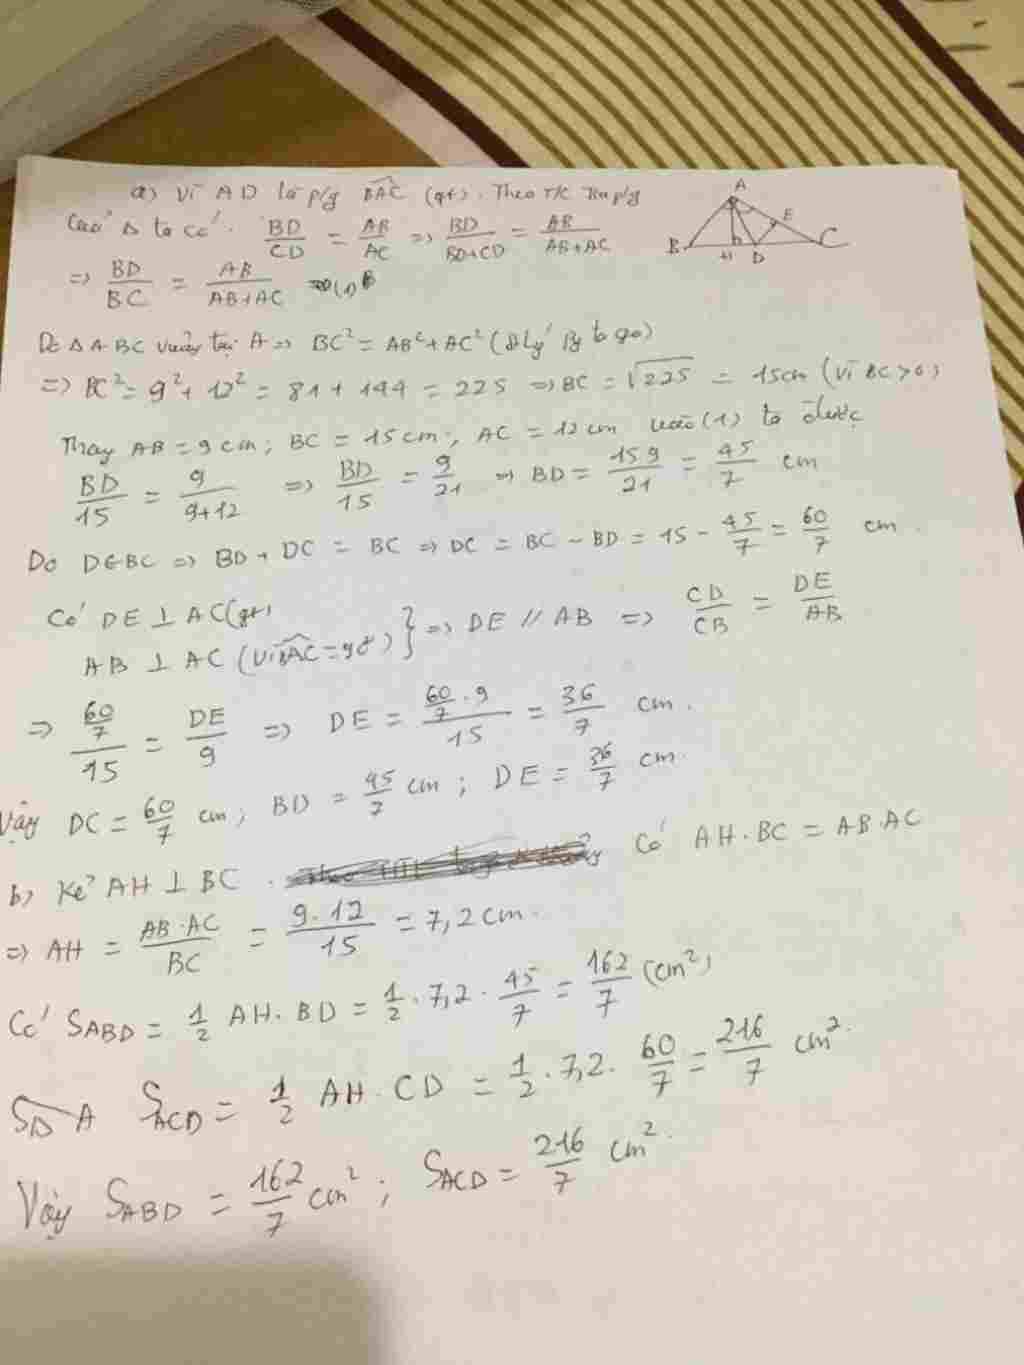 a) Vì AD là p/g BAC (gt). Theo T/C tia p/g
A
E
B
C
H
D
của Δ ta có: BD/CD = AB/AC => BD/(BD+CD) = AB/(AB+AC)
=> BD/BC = AB/(AB+AC) (1)
Do Δ ABC vuông tại A => BC² = AB² + AC² (Đ Lý Py to go)
=> BC² = 9² + 12² = 81 + 144 = 225 => BC = √225 = 15cm (Vì BC > 0)
Thay AB = 9 cm; BC = 15 cm; AC = 12 cm vào (1) ta được
BD/15 = 9/(9+12) => BD/15 = 9/21 => BD = 15.9/21 = 45/7 cm
Do D∈BC => BD + DC = BC => DC = BC - BD = 15 - 45/7 = 60/7 cm.
Có DE ⊥ AC (gt)
AB ⊥ AC (Vì BAC = 90°) } => DE // AB => CD/CB = DE/AB
=> (60/7)/15 = DE/9 => DE = (60/7 . 9)/15 = 36/7 cm.
Vậy DC = 60/7 cm; BD = 45/7 cm; DE = 36/7 cm.
b) Kẻ AH ⊥ BC. Có AH.BC = AB.AC
=> AH = AB.AC/BC = 9.12/15 = 7,2 cm.
Có SABD = 1/2 AH.BD = 1/2 . 7,2 . 45/7 = 162/7 (cm²)
SACD = 1/2 AH.CD = 1/2 . 7,2 . 60/7 = 216/7 cm².
Vậy SABD = 162/7 cm²; SACD = 216/7 cm².